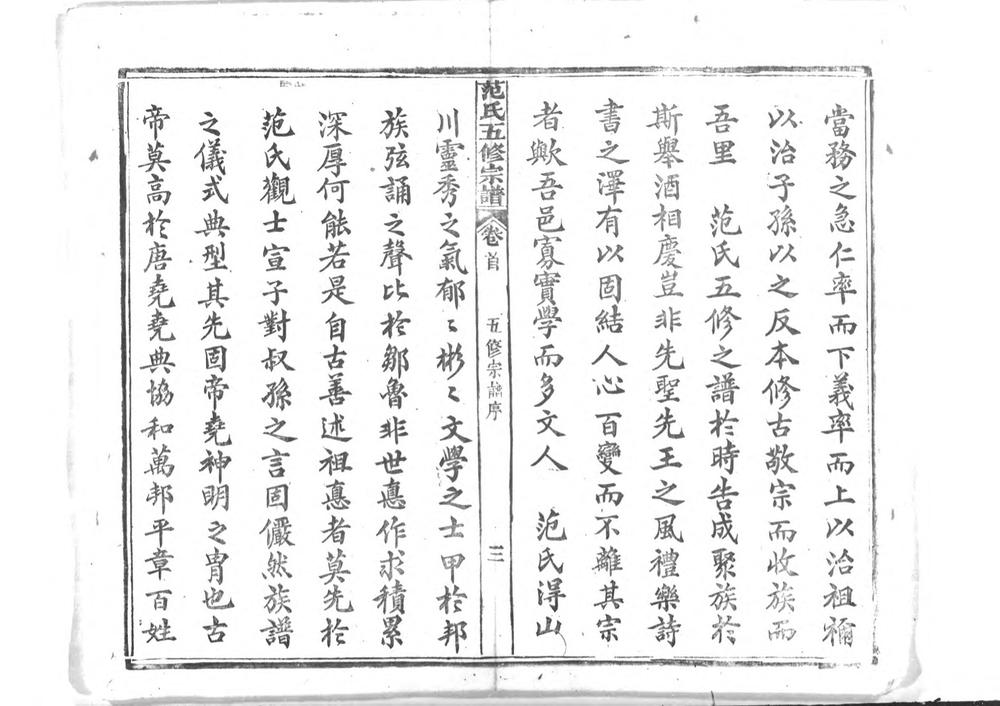 當務之急仁率而下義率而上以治祖禰
以治子孫以之反本修古敬宗而收族而
吾里　范氏五修之譜於時告成聚族於
斯舉酒相慶豈非先聖先王之風禮樂詩
書之澤有以固結人心百變而不離其宗
者歟吾邑寡實學而多文人　范氏得山
范氏五修宗譜　卷首　五修宗譜序　三
川靈秀之氣郁〻彬〻文學之士甲於邦
族弦誦之聲比於鄒魯非世悳作求積累
深厚何能若是自古善述祖悳者莫先於
范氏觀士宣子對叔孫之言固儼然族譜
之儀式典型其先固帝堯神明之冑也古
帝莫高於唐堯堯典協和萬邦平章百姓